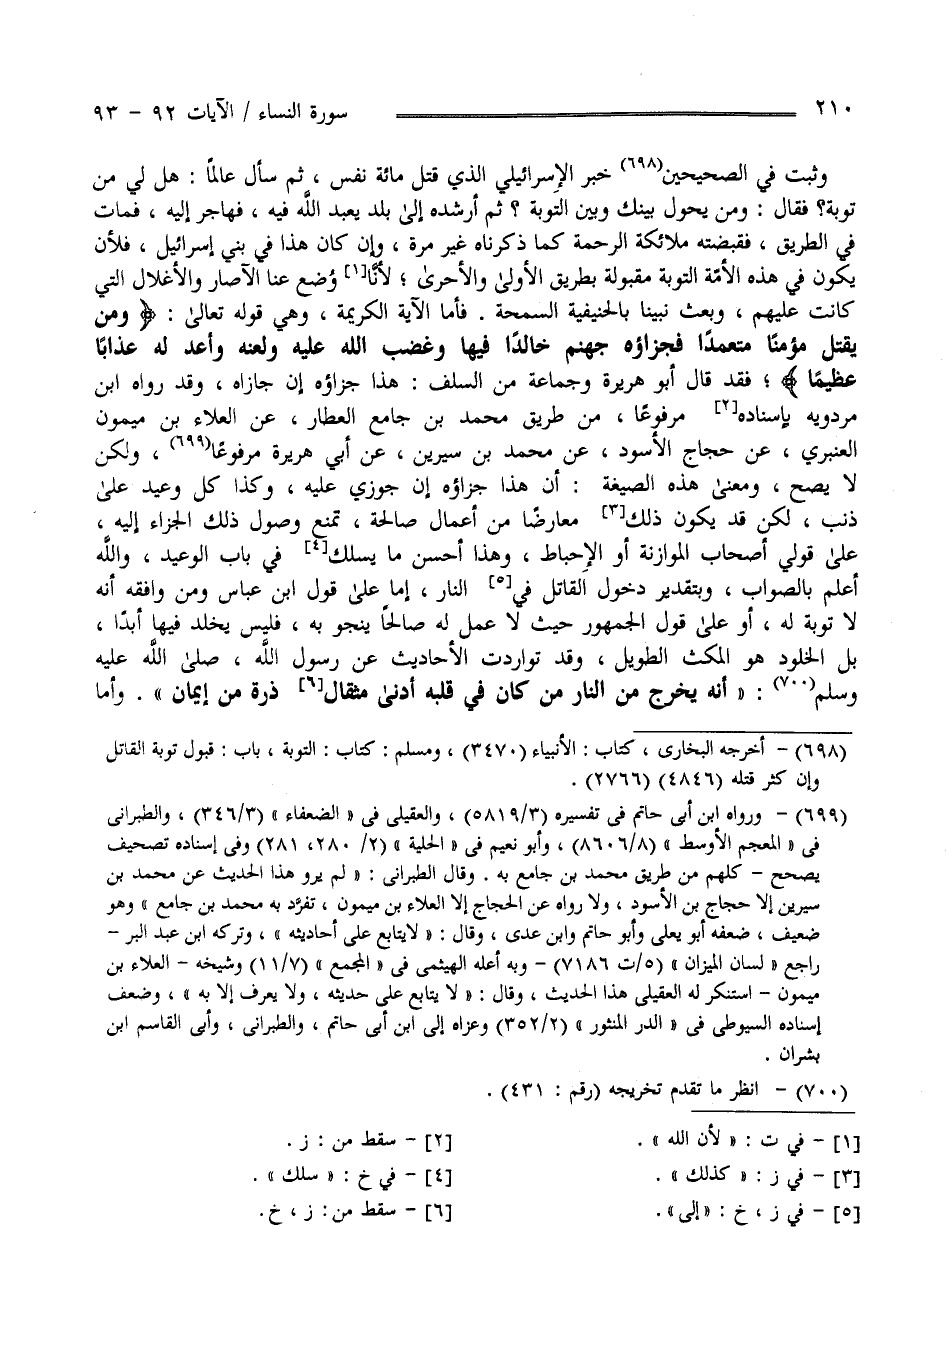 ٢١٠ سورة النساء / الآيات ٩٢ - ٩٣
وثبت في الصحيحين(٦٩٨) خبر الإسرائيلي الذي قتل مائة نفس ، ثم سأل عالمًا : هل لي من
توبة؟ فقال : ومن يحول بينك وبين التوبة ؟ ثم أرشده إلىٰ بلد يعبد اللَّه فيه ، فهاجر إليه ، فمات
في الطريق ، فقبضته ملائكة الرحمة كما ذكرناه غير مرة ، وإن كان هذا في بني إسرائيل ، فلأن
يكون في هذه الأمّة التوبة مقبولة بطريق الأولىٰ والأحرىٰ ؛ لأنَّا[١] وُضع عنا الآصار والأغلال التي
كانت عليهم ، وبعث نبينا بالحنيفية السمحة . فأما الآية الكريمة ، وهي قوله تعالىٰ : ﴿ ومن
يقتل مؤمنًا متعمدًا فجزاؤه جهنم خالدًا فيها وغضب الله عليه ولعنه وأعد له عذابًا
عظيمًا ﴾ ؛ فقد قال أبو هريرة وجماعة من السلف : هذا جزاؤه إن جازاه ، وقد رواه ابن
مردويه بإسناده[٢] مرفوعًا ، من طريق محمد بن جامع العطار ، عن العلاء بن ميمون
العنبري ، عن حجاج الأسود ، عن محمد بن سيرين ، عن أبي هريرة مرفوعًا(٦٩٩) ، ولكن
لا يصح ، ومعنىٰ هذه الصيغة : أن هذا جزاؤه إن جوزي عليه ، وكذا كل وعيد علىٰ
ذنب ، لكن قد يكون ذلك[٣] معارضًا من أعمال صالحة ، تمنع وصول ذلك الجزاء إليه ،
علىٰ قولي أصحاب الموازنة أو الإحباط ، وهذا أحسن ما يسلك[٤] في باب الوعيد ، واللَّه
أعلم بالصواب ، وبتقدير دخول القاتل في[٥] النار ، إما علىٰ قول ابن عباس ومن وافقه أنه
لا توبة له ، أو علىٰ قول الجمهور حيث لا عمل له صالحًا ينجو به ، فليس يخلد فيها أبدًا ،
بل الخلود هو المكث الطويل ، وقد تواردت الأحاديث عن رسول اللَّه ، صلىٰ اللَّه عليه
وسلم(٧٠٠) : « أنه يخرج من النار من كان في قلبه أدنىٰ مثقال[٦] ذرة من إيمان » . وأما
(٦٩٨) - أخرجه البخارى ، كتاب : الأنبياء (٣٤٧٠) ، ومسلم : كتاب : التوبة ، باب : قبول توبة القاتل
وإن كثر قتله (٤٨٤٦) (٢٧٦٦) .
(٦٩٩) - ورواه ابن أبى حاتم فى تفسيره (٥٨١٩/٣) ، والعقيلى فى « الضعفاء » (٣٤٦/٣) ، والطبرانى
فى « المعجم الأوسط » (٨٦٠٦/٨) ، وأبو نعيم فى « الحلية » (٢/ ٢٨٠، ٢٨١) وفى إسناده تصحيف
يصحح - كلهم من طريق محمد بن جامع به . وقال الطبرانى : « لم يرو هذا الحديث عن محمد بن
سيرين إلا حجاج بن الأسود ، ولا رواه عن الحجاج إلا العلاء بن ميمون ، تفرَّد به محمد بن جامع » وهو
ضعيف ، ضعفه أبو يعلى وأبو حاتم وابن عدى ، وقال : « لايتابع على أحاديثه » ، وتركه ابن عبد البر -
راجع « لسان الميزان » (٥/ت ٧١٨٦) - وبه أعله الهيثمى فى « المجمع » (١١/٧) وشيخه - العلاء بن
ميمون - استنكر له العقيلى هذا الحديث ، وقال : « لا يتابع على حديثه ، ولا يعرف إلا به » ، وضعف
إسناده السيوطى فى « الدر المنثور » (٣٥٢/٢) وعزاه إلى ابن أبى حاتم ، والطبرانى ، وأبى القاسم ابن
بشران .
(٧٠٠) - انظر ما تقدم تخريجه (رقم : ٤٣١) .
[١] - في ت : « لأن الله » . [٢] - سقط من : ز .
[٣] - في ز : « كذلك » . [٤] - في خ : « سلك » .
[٥] - في ز ، خ : «إلى». [٦] - سقط من: ز ، خ.